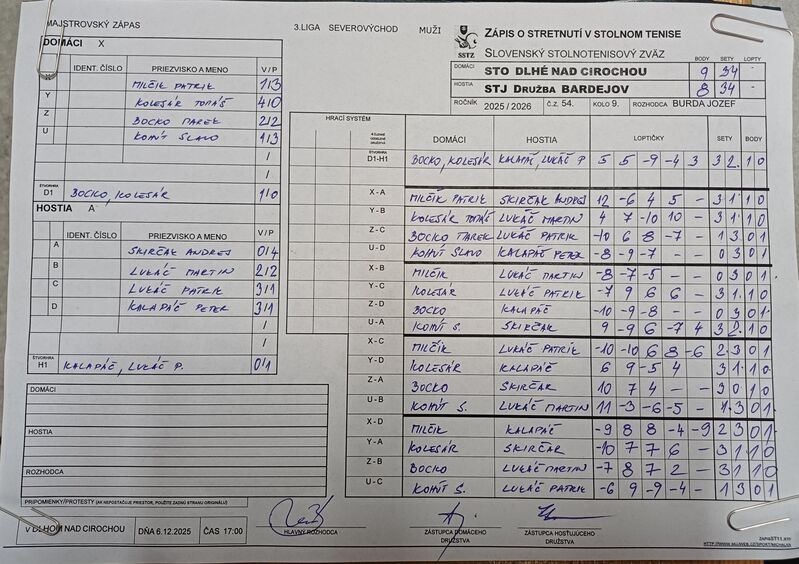 MAJSTROVSKÝ ZÁPAS
3.LIGA SEVEROVÝCHOD MUŽI
ZÁPIS O STRETNUTÍ V STOLNOM TENISE
SSTZ SLOVENSKÝ STOLNOTENISOVÝ ZVÄZ
BODY SETY LOPTY
DOMÁCI STO DLHÉ NAD CIROCHOU 9 34 -
HOSTIA STJ DRUŽBA BARDEJOV 8 34 -
ROČNÍK 2025 / 2026 Č.Z. 54. KOLO 9. ROZHODCA BURDA JOZEF
DOMÁCI X
IDENT. ČÍSLO PRIEZVISKO A MENO V / P
X MILČÍK PATRIK 1/3
Y KOLESÁR TOMÁŠ 4/0
Z BOCKO MAREK 2/2
U KOHÚT SLAVO 1/3
/
/
ŠTVORHRA D1 BOCKO, KOLESÁR 1/0
HOSTIA A
IDENT. ČÍSLO PRIEZVISKO A MENO V / P
A SKIRČAK ANDREJ 0/4
B LUKÁČ MARTIN 2/2
C LUKÁČ PATRIK 3/1
D KALAPÁČ PETER 3/1
/
/
ŠTVORHRA H1 KALAPÁČ, LUKÁČ P. 0/1
DOMÁCI
HOSTIA
ROZHODCA
PRIPOMIENKY/PROTESTY (AK NEPOSTAČUJE PRIESTOR, POUŽITE ZADNÚ STRANU ORIGINÁLU)
HRACÍ SYSTÉM
DOMÁCI HOSTIA LOPTIČKY SETY BODY
ŠTVORHRA D1-H1 BOCKO, KOLESÁR KALAPÁČ, LUKÁČ P 5 5 -9 -4 3 3 2 1 0
X - A MILČÍK PATRIK SKIRČAK ANDREJ 12 -6 4 5 - 3 1 1 0
Y - B KOLESÁR TOMÁŠ LUKÁČ MARTIN 4 7 -10 10 - 3 1 1 0
Z - C BOCKO MAREK LUKÁČ PATRIK -10 6 -8 -7 - 1 3 0 1
U - D KOHÚT SLAVO KALAPÁČ PETER -8 -9 -7 - - 0 3 0 1
X - B MILČÍK LUKÁČ MARTIN -8 -7 -5 - - 0 3 0 1
Y - C KOLESÁR LUKÁČ PATRIK -7 9 6 6 - 3 1 1 0
Z - D BOCKO KALAPÁČ -10 -9 -8 - - 0 3 0 1
U - A KOHÚT S. SKIRČAK 9 -9 6 -7 4 3 2 1 0
X - C MILČÍK LUKÁČ PATRIK -10 -10 6 8 -6 2 3 0 1
Y - D KOLESÁR KALAPÁČ 6 9 -5 4 3 1 1 0
Z - A BOCKO SKIRČAK 10 7 4 - - 3 0 1 0
U - B KOHÚT S. LUKÁČ MARTIN 11 -3 -6 -5 - 1 3 0 1
X - D MILČÍK KALAPÁČ -9 8 8 -4 -9 2 3 0 1
Y - A KOLESÁR SKIRČAK -10 7 7 6 - 3 1 1 0
Z - B BOCKO LUKÁČ MARTIN -7 8 7 2 - 3 1 1 0
U - C KOHÚT S. LUKÁČ PATRIK -6 9 -9 -4 - 1 3 0 1
V DLHOM NAD CIROCHOU DŇA 6.12.2025 ČAS 17:00
HLAVNÝ ROZHODCA
ZÁSTUPCA DOMÁCEHO DRUŽSTVA
ZÁSTUPCA HOSŤUJÚCEHO DRUŽSTVA